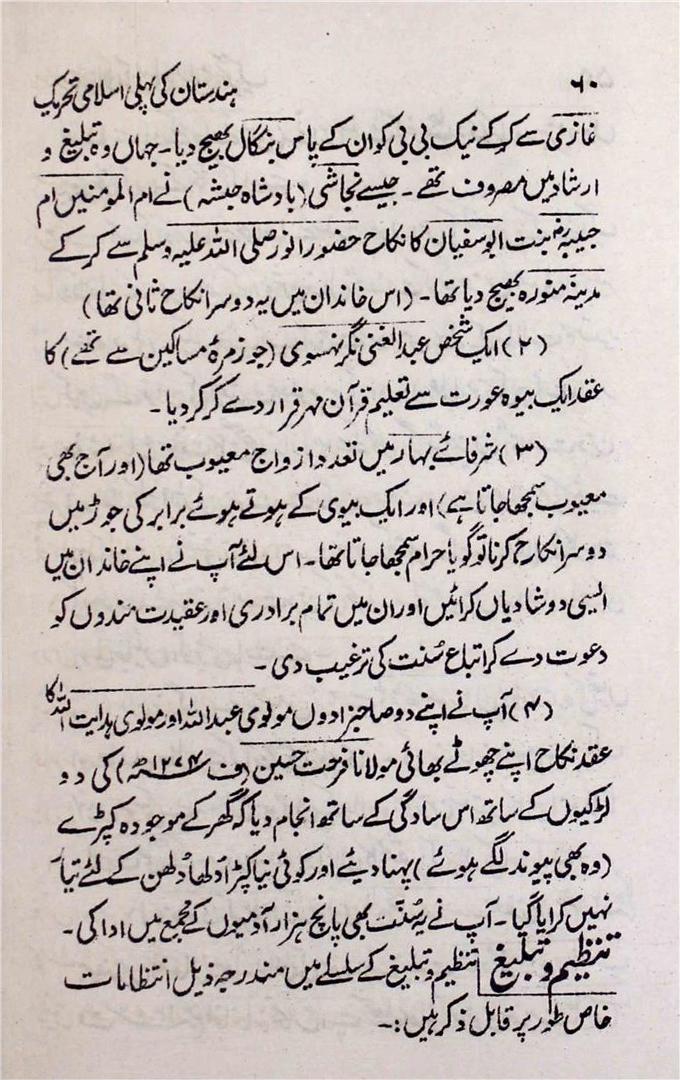 ۶۰
ہندستان کی پہلی اسلامی تحریک
غازی سے کر کے نیک بی بی کو ان کے پاس بنگال بھیج دیا۔ جہاں وہ تبلیغ و
ارشاد میں مصروف تھے۔ جیسے نجاشی (بادشاہ حبشہ) نے ام المومنیں ام
حبیبہ رضؓ بنت ابوسفیان کا نکاح حضور انور صلی اللہ علیہ وسلم سے کر کے
مدینہ منورہ بھیج دیا تھا۔ (اس خاندان میں یہ دوسرا نکاح ثانی تھا)
(۲) ایک شخص عبدالغنی نگرنہسوی (جو زمرۂ مساکین سے تھے) کا
عقد ایک بیوہ عورت سے تعلیم قرآن مہر قرار دے کر کر دیا۔
(۳) شرفائے بہار میں تعدد ازواج معیوب تھا (اور آج بھی
معیوب سمجھا جاتا ہے) اور ایک بیوی کے ہوتے ہوئے برابر کی جوڑ میں
دوسرا نکاح کرنا تو گویا حرام سمجھا جاتا تھا۔ اس لئے آپ نے اپنے خاندان میں
ایسی دو شادیاں کرائیں اور ان میں تمام برادری اور عقیدت مندوں کو
دعوت دے کر اتباع سُنت کی ترغیب دی۔
(۴) آپ نے اپنے دو صاحبزادوں مولوی عبداللہ اور مولوی ہدایت اللہ کا
عقد نکاح اپنے چھوٹے بھائی مولانا فرحت حسین (ف ۱۲۷۴ھ) کی دو
لڑکیوں کے ساتھ اس سادگی کے ساتھ انجام دیا کہ گھر کے موجودہ کپڑے
(وہ بھی پیوند لگے ہوئے) پہنا دیئے اور کوئی نیا کپڑا دلھا دُلھن کے لئے تیار
نہیں کرایا گیا۔ آپ نے یہ سُنّت بھی پانچ ہزار آدمیوں کے مجمع میں ادا کی۔
تنظیم و تبلیغ تنظیم و تبلیغ کے سلسلے میں مندرجہ ذیل انتظامات
خاص طور پر قابل ذکر ہیں:۔